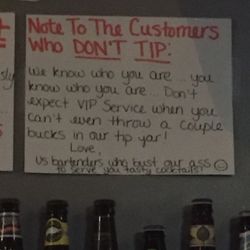 Note To The Customers
Who DON'T TIP:
We know who you are... you
know who you are... Don't
expect VIP Service when you
can't even throw a couple
bucks in our tip yar!
Love,
us bartenders who bust our ass
to serve you tasty cocktails!